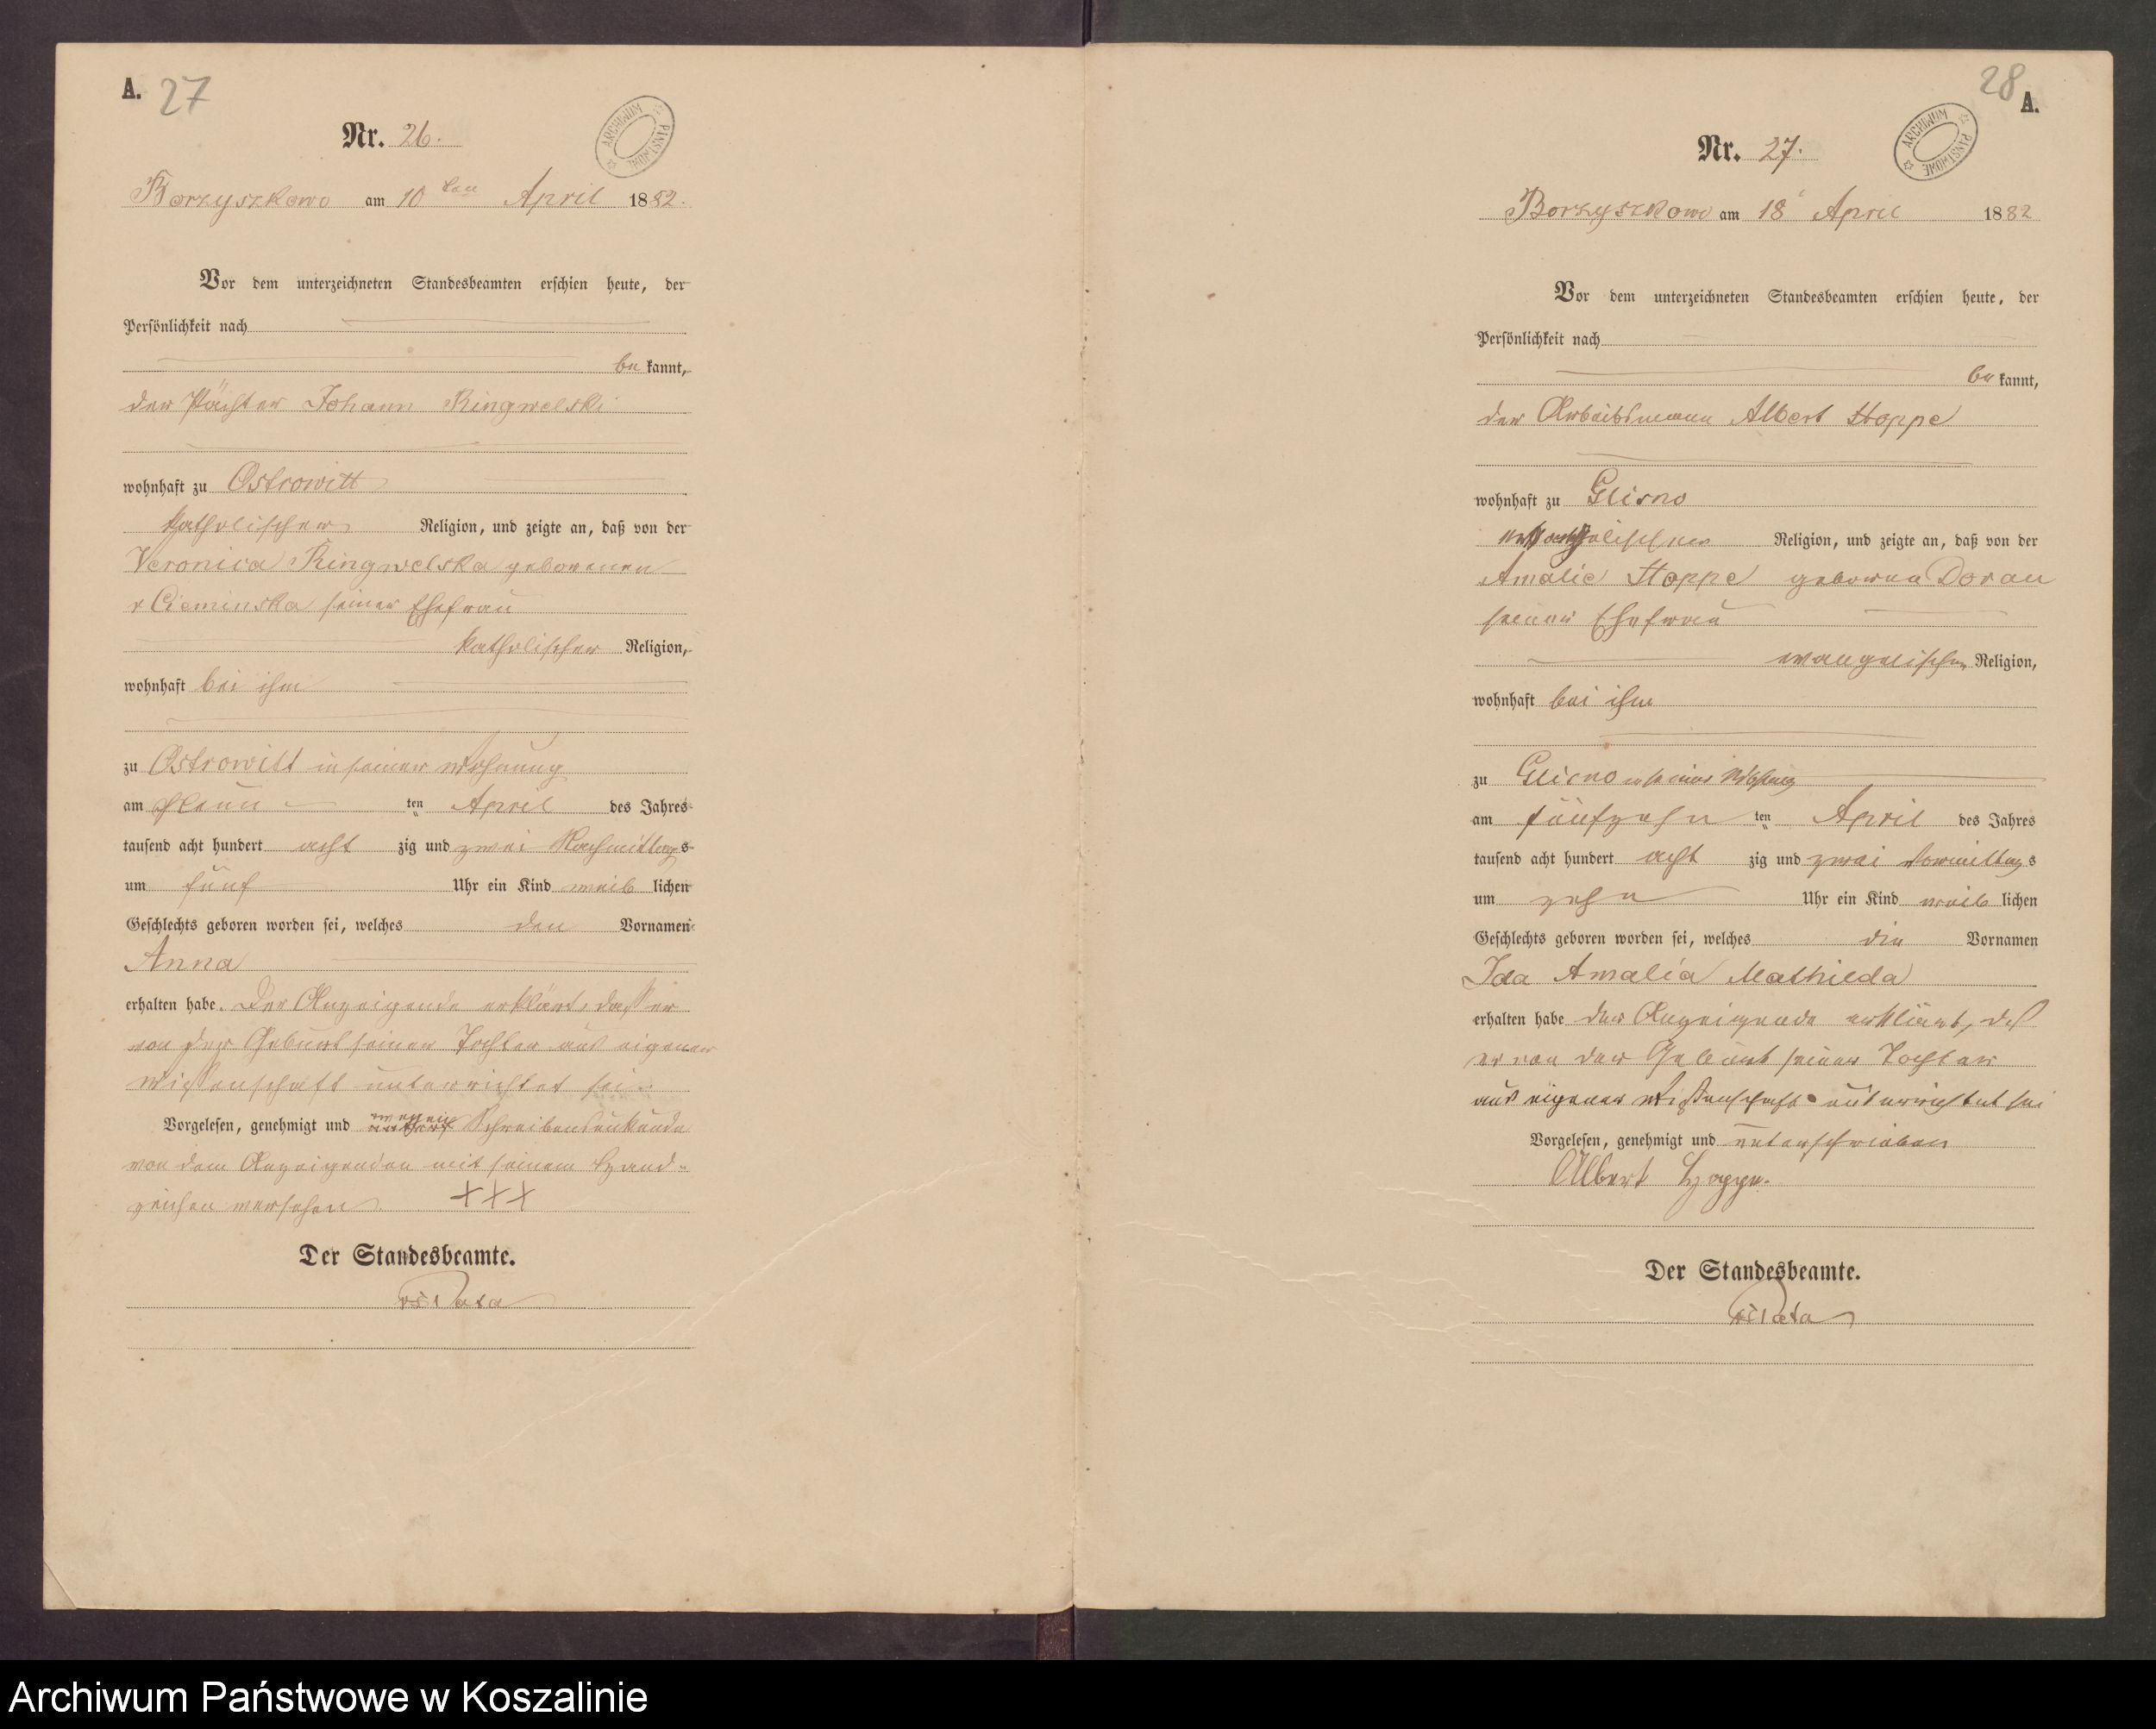 A. 27
Nr. 26.
ARCHIWUM PAŃSTWOWE
Borzyszkowo am 10ten April 1882.
Vor dem unterzeichneten Standesbeamten erschien heute, der
Persönlichkeit nach
be kannt,
der Pächter Johann Ringwelski
wohnhaft zu Ostrowitt
katholischer Religion, und zeigte an, daß von der
Veronica Ringwelska geborenen
v Cieminska seiner Ehefrau
katholischer Religion,
wohnhaft bei ihm
zu Ostrowitt in seiner Wohnung
am ten April des Jahres
tausend acht hundert acht zig und zwei Nachmittags
um fünf Uhr ein Kind weib lichen
Geschlechts geboren worden sei, welches den Vornamen
Anna
erhalten habe. Der Anzeigende erklärt, daß er
von der Geburt seiner Tochter aus eigener
Wissenschaft unterrichtet sei.
Vorgelesen, genehmigt und wegen Schreibensunkunde
von dem Anzeigenden mit seinem Hand-
zeichen versehen. +++
Der Standesbeamte.
28 A.
Nr. 27.
ARCHIWUM PAŃSTWOWE
Borzyszkowo am 18 April 1882
Vor dem unterzeichneten Standesbeamten erschien heute, der
Persönlichkeit nach
be kannt,
der Arbeitsmann Albert Hoppe
wohnhaft zu Glisno
Religion, und zeigte an, daß von der
Amalie Hoppe geboren Doran
seiner Ehefrau
evangelischer Religion,
wohnhaft bei ihm
zu Glisno in seiner Wohnung
am fünfzehn ten April des Jahres
tausend acht hundert acht zig und zwei Vormittags
um zehn Uhr ein Kind weib lichen
Geschlechts geboren worden sei, welches die Vornamen
Ida Amalia Mathilda
erhalten habe der Anzeigende erklärt, daß
er von der Geburt seiner Tochter
aus eigener Wissenschaft unterrichtet sei
Vorgelesen, genehmigt und unterschrieben
Albert Hoppe.
Der Standesbeamte.
Archiwum Państwowe w Koszalinie